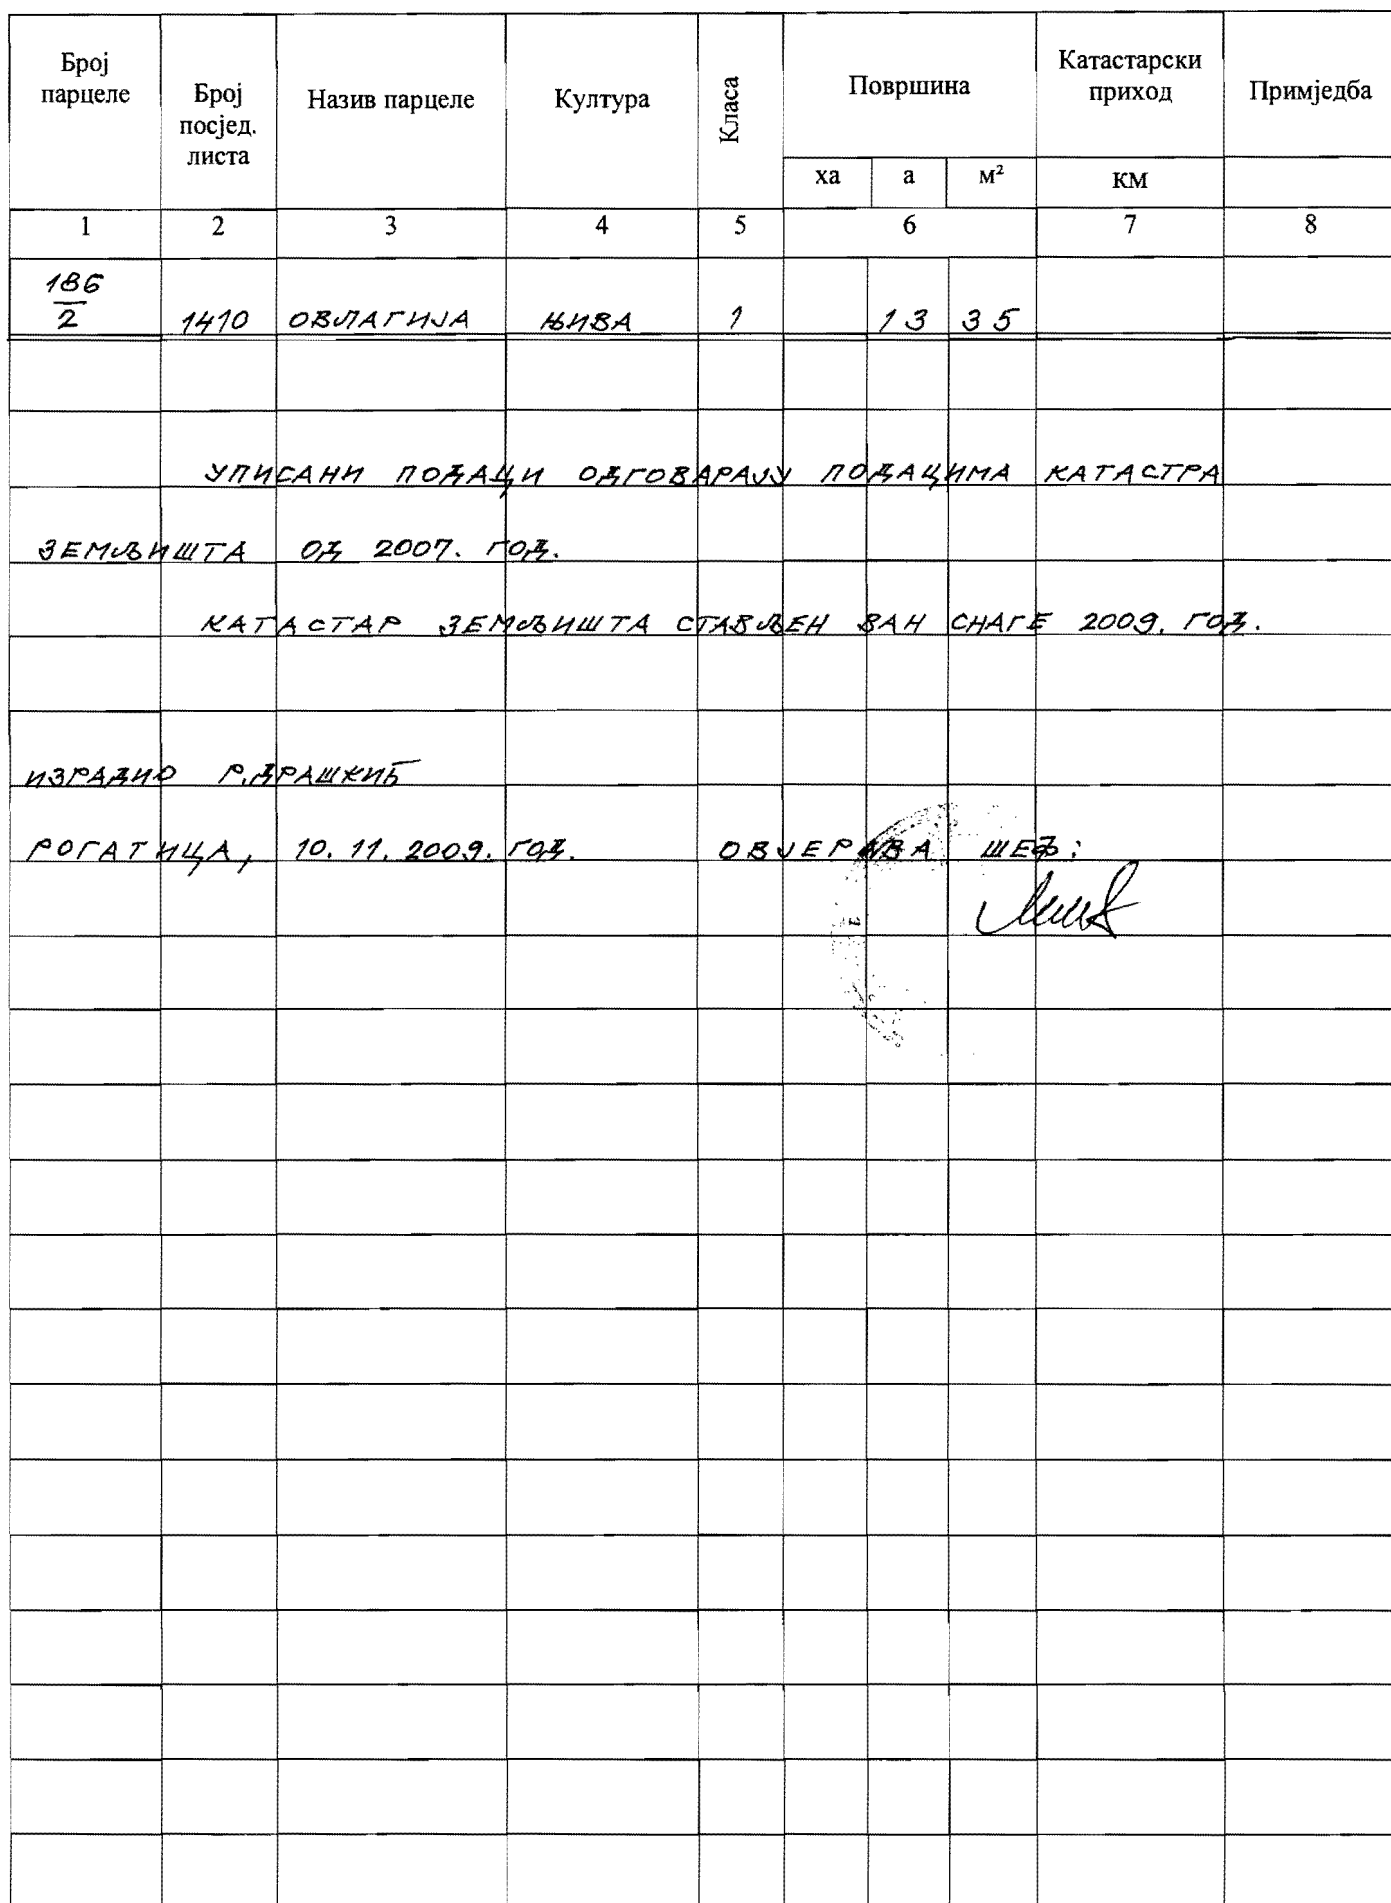 Број парцеле | Број посјед. листа | Назив парцеле | Култура | Класа | Површина | Катастарски приход | Примједба
ха | а | м² | КМ
1 | 2 | 3 | 4 | 5 | 6 | 7 | 8
186/2 | 1410 | ОВЛАГИЈА | ЊИВА | 1 | 13 | 35
УПИСАНИ ПОДАЦИ ОДГОВАРАЈУ ПОДАЦИМА КАТАСТРА
ЗЕМЉИШТА ОД 2007. ГОД.
КАТАСТАР ЗЕМЉИШТА СТАВЉЕН ВАН СНАГЕ 2009. ГОД.
ИЗРАДИО Р.ДРАШКИЋ
РОГАТИЦА, 10.11.2009. ГОД. ОВЈЕРАВА ШЕФ: